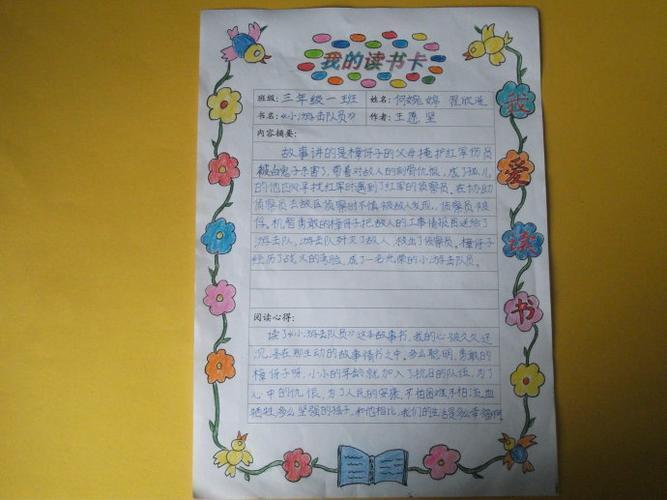 我的读书卡
班级: 三年级一班 姓名: 何婉婷 程欣
书名: 《小游击队员》 作者: 王愿坚
内容摘要:
故事讲的是樟伢子的父母掩护红军伤员
被白鬼子杀害了,带着对敌人的刻骨仇恨,成了孤儿
的他在寻找红军时遇到了红军的侦察员,在协助
侦察员去敌区侦察时不慎被敌人发现,侦察员被
俘。机智勇敢的樟伢子把敌人的工事情报员送给了
游击队,游击队歼灭了敌人,救出了侦察员。樟伢子
经历了战火的考验,成了一名光荣的小游击队员。
阅读心得:
读了《小游击队员》这本故事书,我的心被久久
沉浸在那生动的故事情节之中,多么聪明,勇敢的
樟伢子呀,小小的年龄就加入了抗日的队伍,为了
心中的仇恨,为了人民的安康,不怕困难不怕流血
牺牲,多么坚强的孩子,和他相比,我们的生活是多么幸福啊
我爱读书